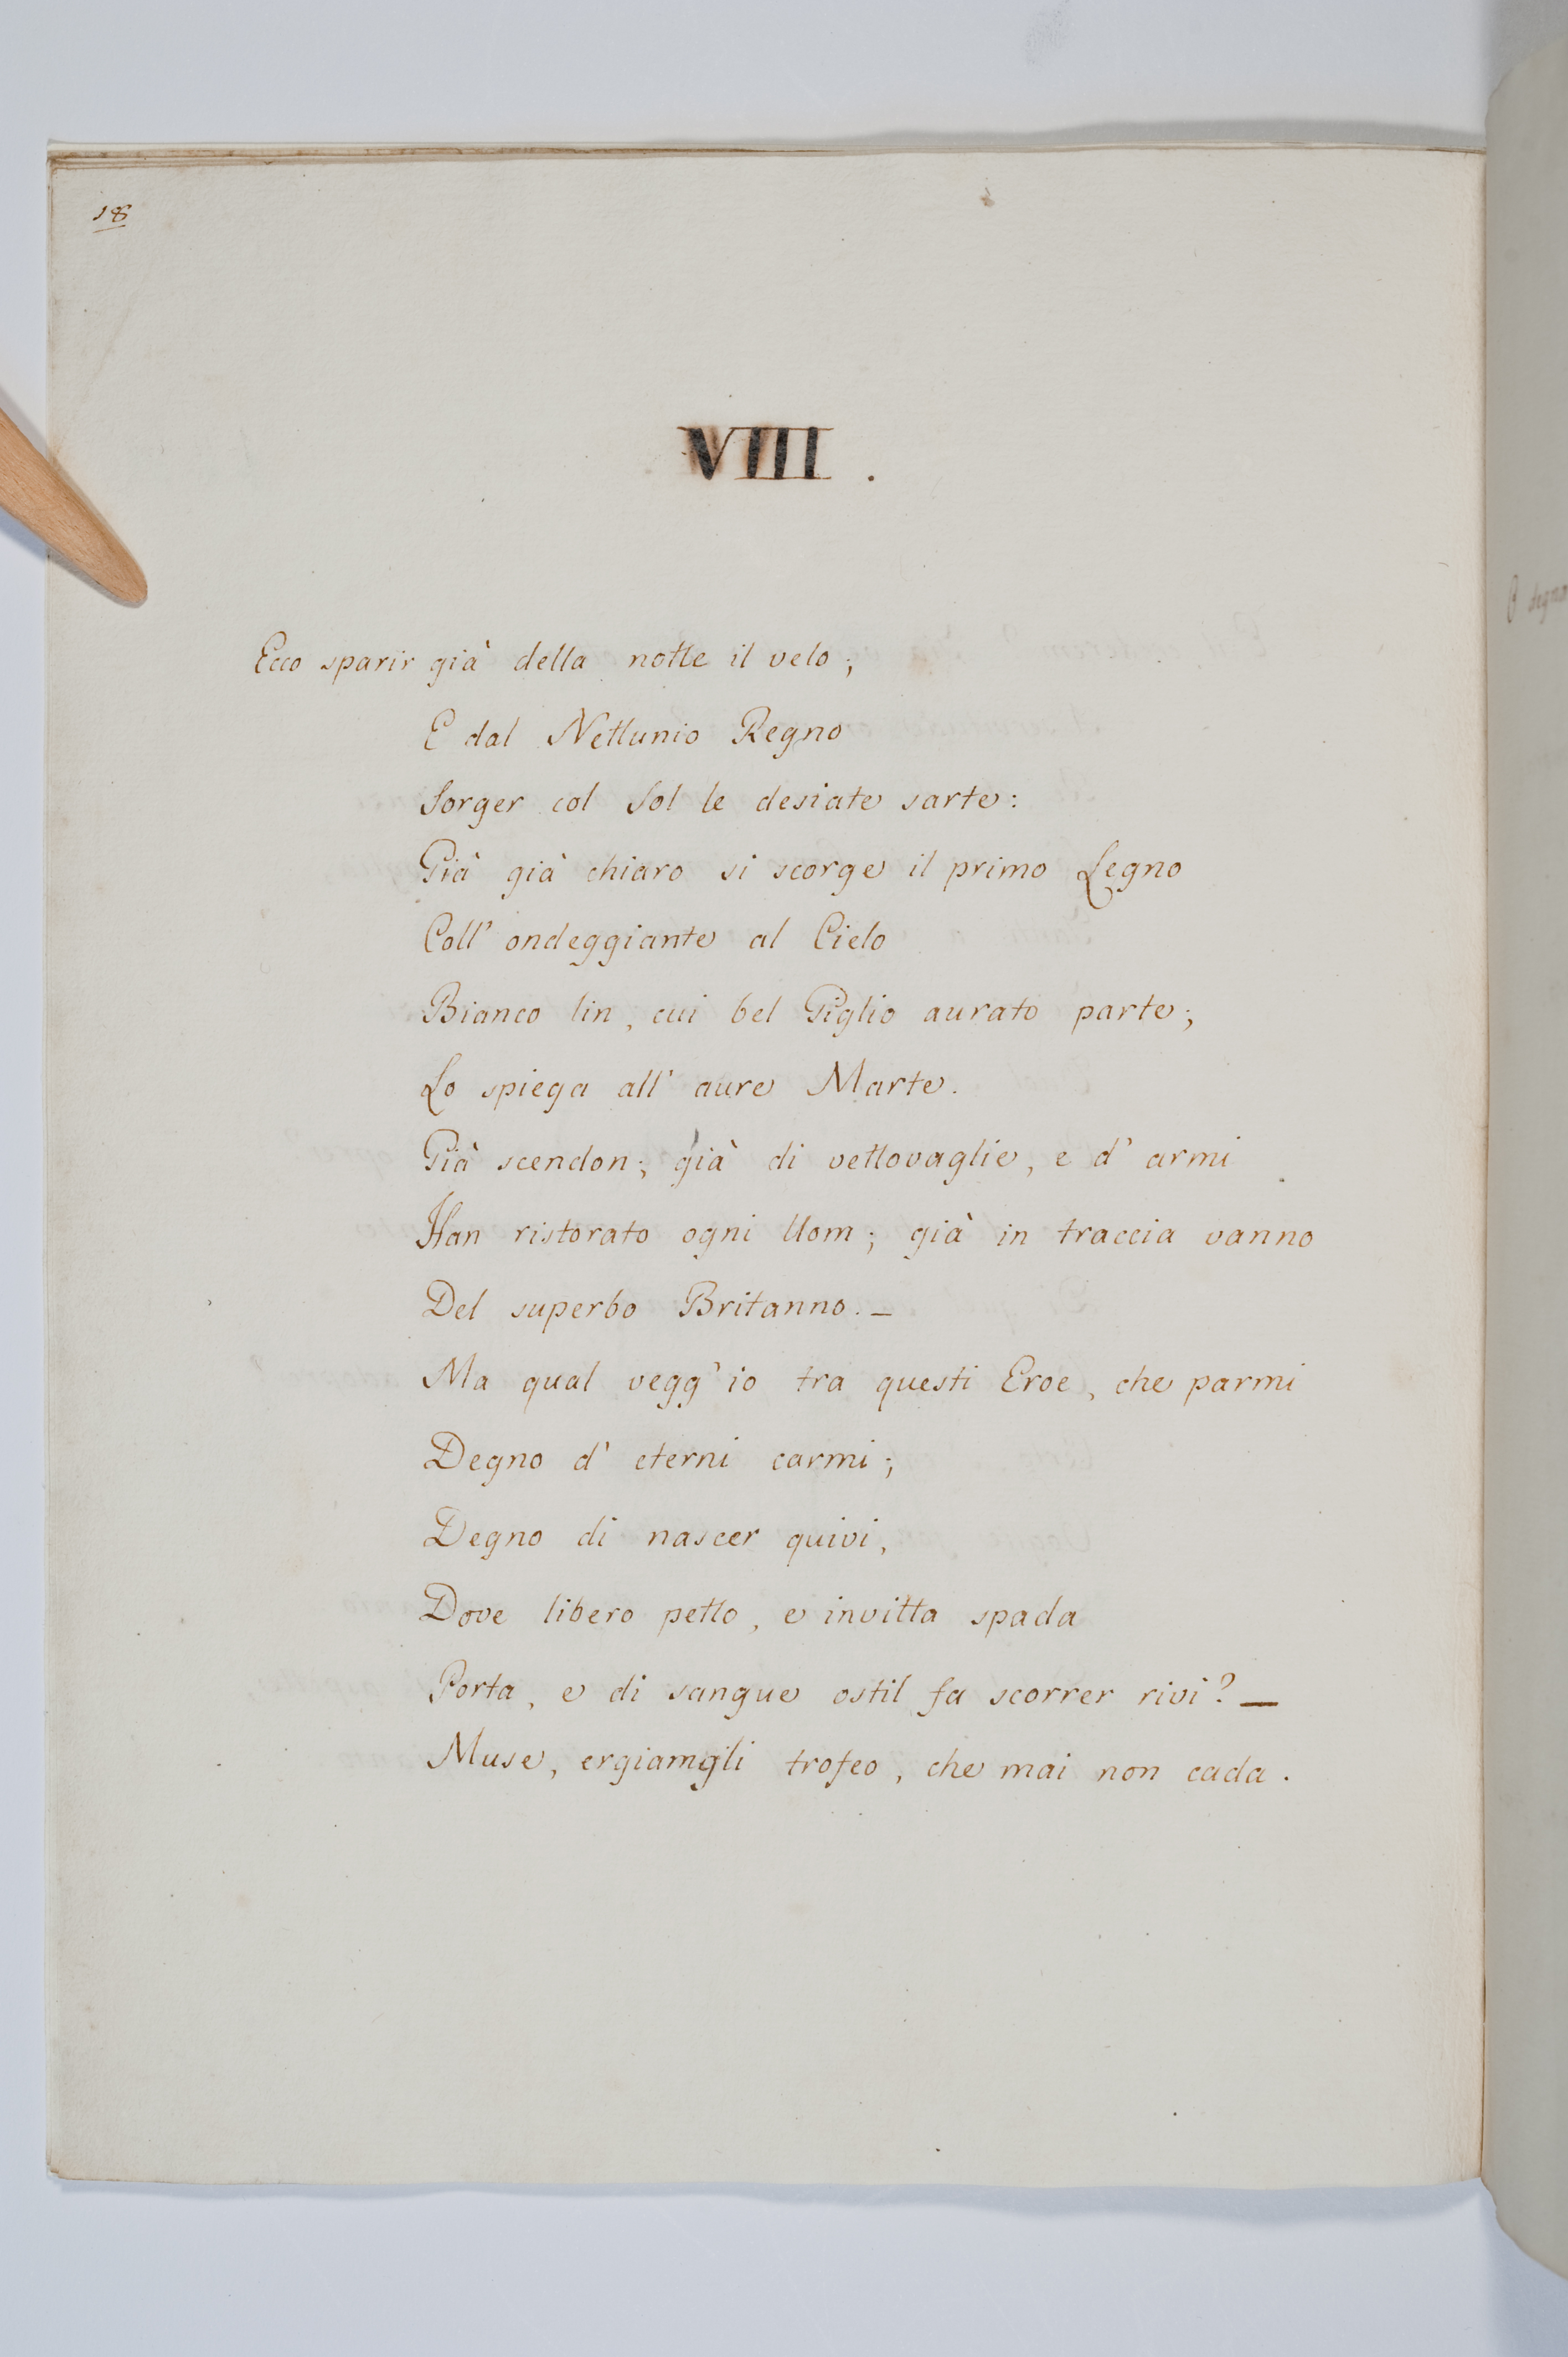 18
VIII.
Ecco sparir già della notte il velo;
E dal Nettunio Regno
Sorger col Sol le desiate sarte:
Già già chiaro si scorge il primo Legno
Coll' ondeggiante al Cielo
Bianco lin, cui bel Giglio aurato parte;
Lo spiega all' aure Marte.
Già scendon; già di vettovaglie, e d' armi
Han ristorato ogni Uom; già in traccia vanno
Del superbo Britanno. —
Ma qual vegg' io tra questi Eroe, che parmi
Degno d' eterni carmi;
Degno di nascer quivi,
Dove libero petto, e invitta spada
Porta, e di sangue ostil fa scorrer rivi? —
Muse, ergiamgli trofeo, che mai non cada.